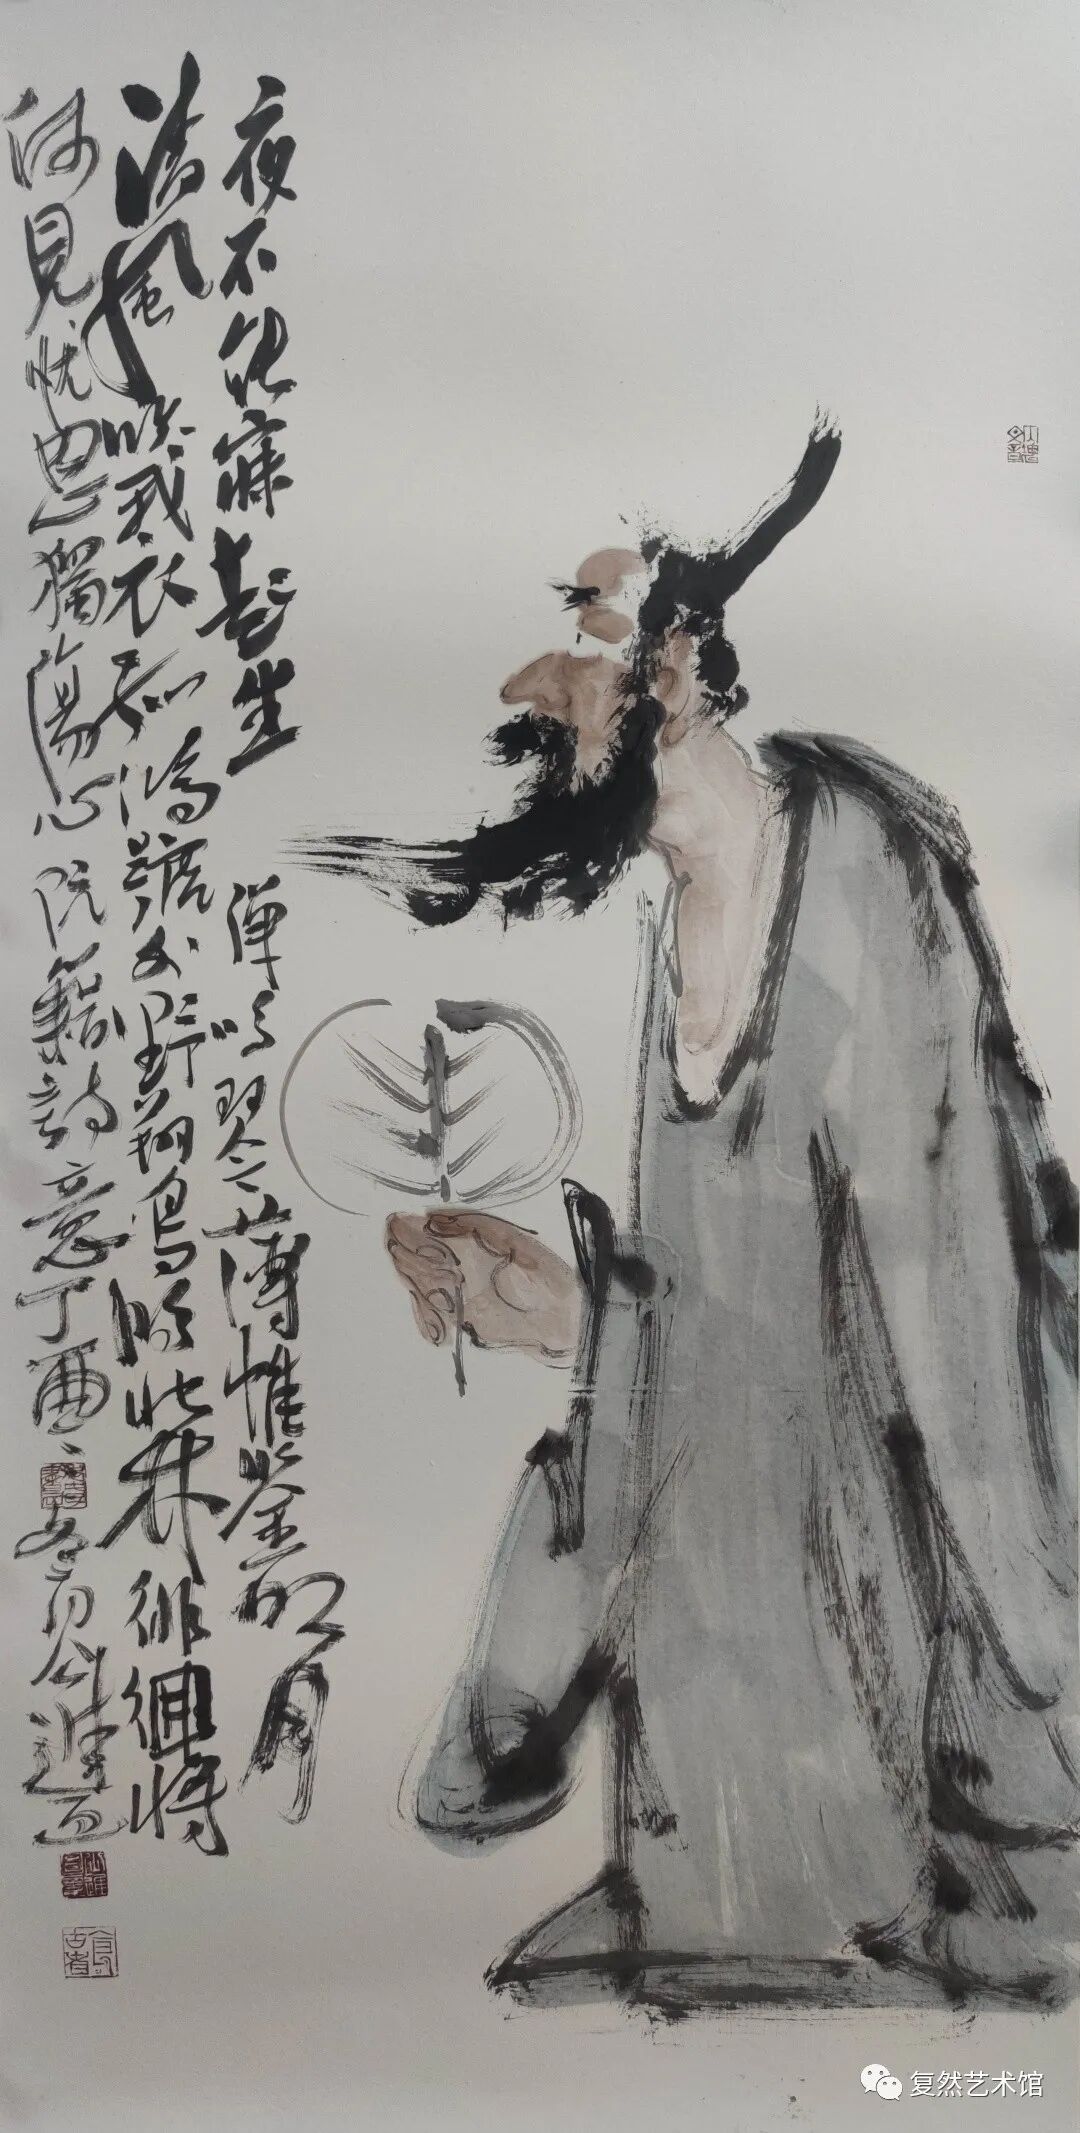 夜不能寐起坐彈鳴琴薄帷鑒明月
清風吹我衣孤鴻號外野翔鳥鳴北林徘徊將
何見忧思獨傷心阮籍詩意丁酉
复然艺术馆